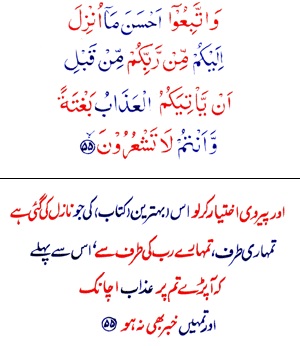 وَاتَّبِعُوْۤا اَحْسَنَ مَاۤ اُنْزِلَ
اِلَيْكُمْ مِّنْ رَّبِّكُمْ مِّنْ قَبْلِ
اَنْ يَّاْتِيَكُمُ الْعَذَابُ بَغْتَةً
وَّاَنْتُمْ لَا تَشْعُرُوْنَ ۙ‏﴿۵۵﴾
اور پیروی اختیار کرلو اس (بہترین (کتاب) کی جو نازل کی گئی ہے
تمہاری طرف، تمہارے رب کی طرف سے‘ اس سے پہلے
کہ آ پڑے تم پر عذاب اچانک
اور تمہیں خبر بھی نہ ہو ﴿۵۵﴾